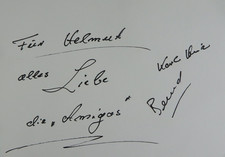 Für Helmut
alles Liebe
die „Amigos"
Karl Heinz
Bernd